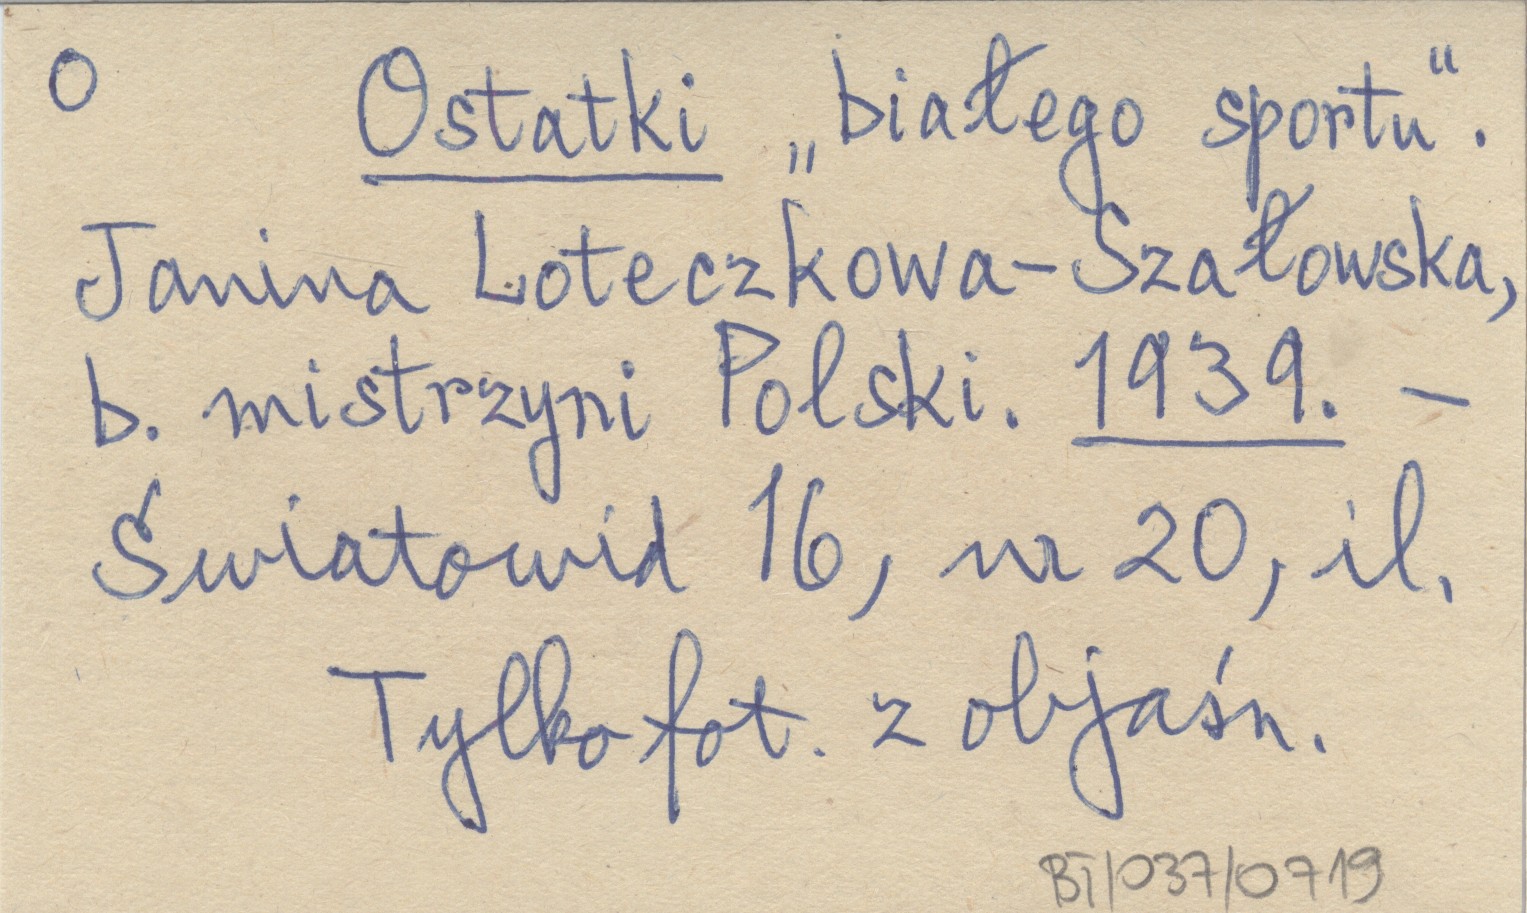 O Ostatki „białego sportu“.
Janina Loteczkowa-Szałowska,
b. mistrzyni Polski. 1939. –
Światowid 16, nr 20, il.
Tylko fot. z objaśn.
BT/037/0719